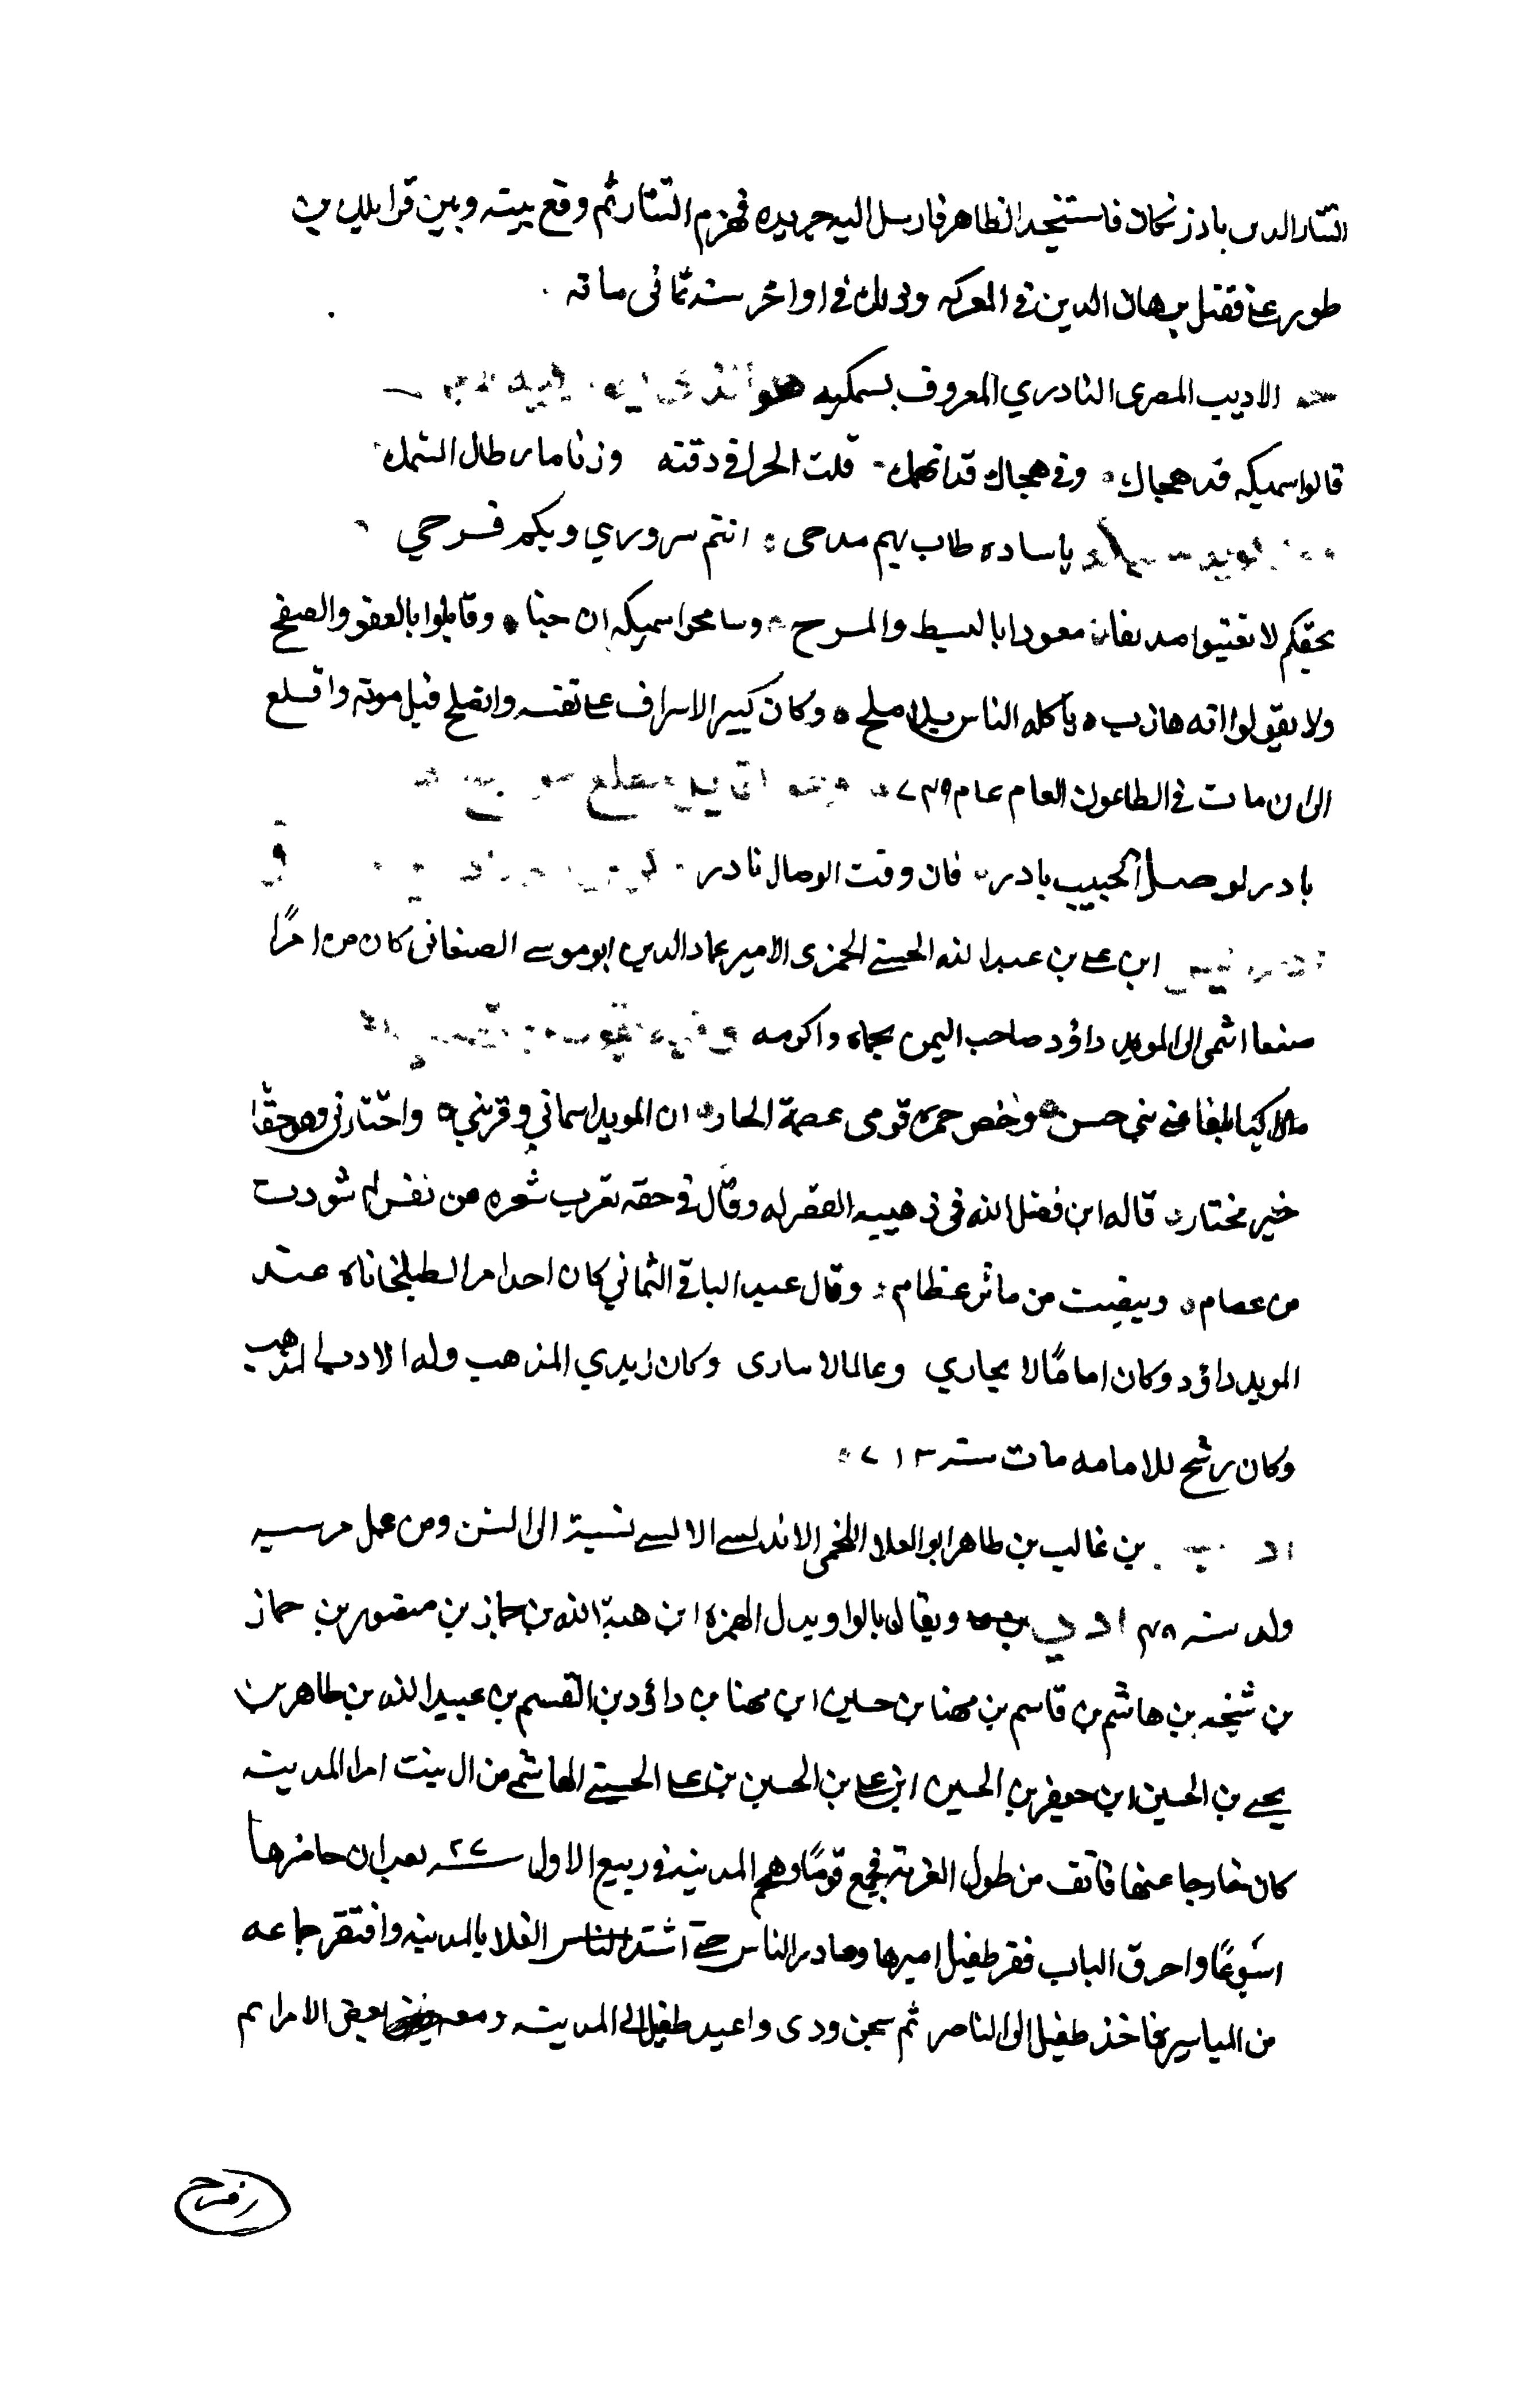 التتار الدين باذزنكان فاستنجد الظاهر فارسل اليه جريده فهزم التتار ثم وقع بينه وبين قرايلك بن
طور على فقتل برهان الدين في المعركه وذلك في اواخر سنه ثماني مائه
الاديب المصري النادري المعروف بسميكه هو
قالوا سميكه قد هجاك وفي هجاك قد انهمك قلت الحرا في دقنه وزنا مارطال السمك
ياساده طاب بهم مدحي انتم سروري وبكم فرحي
بحقكم لا تعتبوا معودا بالبسط والمزح وسامحوا سميكه ان جنا وقابلوا بالعفو والصفح
ولا يقولوا انه هازب ياكله الناس بلا ملح وكان كبير الاسراف على نفسه وانصلح قبل موته واقلع
الى ان مات في الطاعون العام عام ٧٤٩
بادر لوصل الحبيب بادر فان وقت الوصال نادر
ابن علي بن عبد الله الحسني الحمزي الامير عماد الدين ابو موسى الصنعاني كان من امرا
صنعا انتمى الى المويد داود صاحب اليمن بحماه واكرمه
بلغا عني بني حسن وخص حمزه قومي عصمة الجار ان المويد اسماني وقربني واختارني وهو حقا
خير مختار قاله ابن فضل الله في ذهبيه العصر له وقال في حقه تعرب شعره من نفس له شودت
من عصام وبيضت من ماثر عظام وقال عبد الباقي اليماني كان احد امرا الطبلخاناه عند
المويد داود وكان اماما لا يجاري وعالما لا يبارى وكان زيدي المذهب وله الادب المذهب
وكان يرشح للامامه مات سنه ٧١٣
بن غالب بن طاهر ابو العلا اللخمي الاندلسي الالسي نسبة الى الش ومن عمل مرسيه
ولد سنه ٦٣٨ ويقال بالواو بدل الهمزه ابن هبة الله بن جماز بن منصور بن جماز
بن شيحه بن هاشم بن قاسم بن مهنا بن حسين ابن مهنا بن داود بن القسم بن عبيد الله بن طاهر بن
يحيى بن الحسين ابن جعفر بن الحسين ابن علي بن الحسين بن علي الحسيني الهاشمي من ال بيت امرا المدينه
كان خارجا عنها فانف من طول الغربة فجمع قوما وهجم المدينه في ربيع الاول سنه ٢٧ بعد ان حاصرها
اسبوعا واحرق الباب ففر طفيل اميرها وصادر الناس حتى اشتد الغلا بالمدينه وافتقر جماعه
من المياسير فاخذ طفيل الى الناصر ثم سجن ودى واعيد طفيل الى المدينه ومعه بعض الامرا ثم